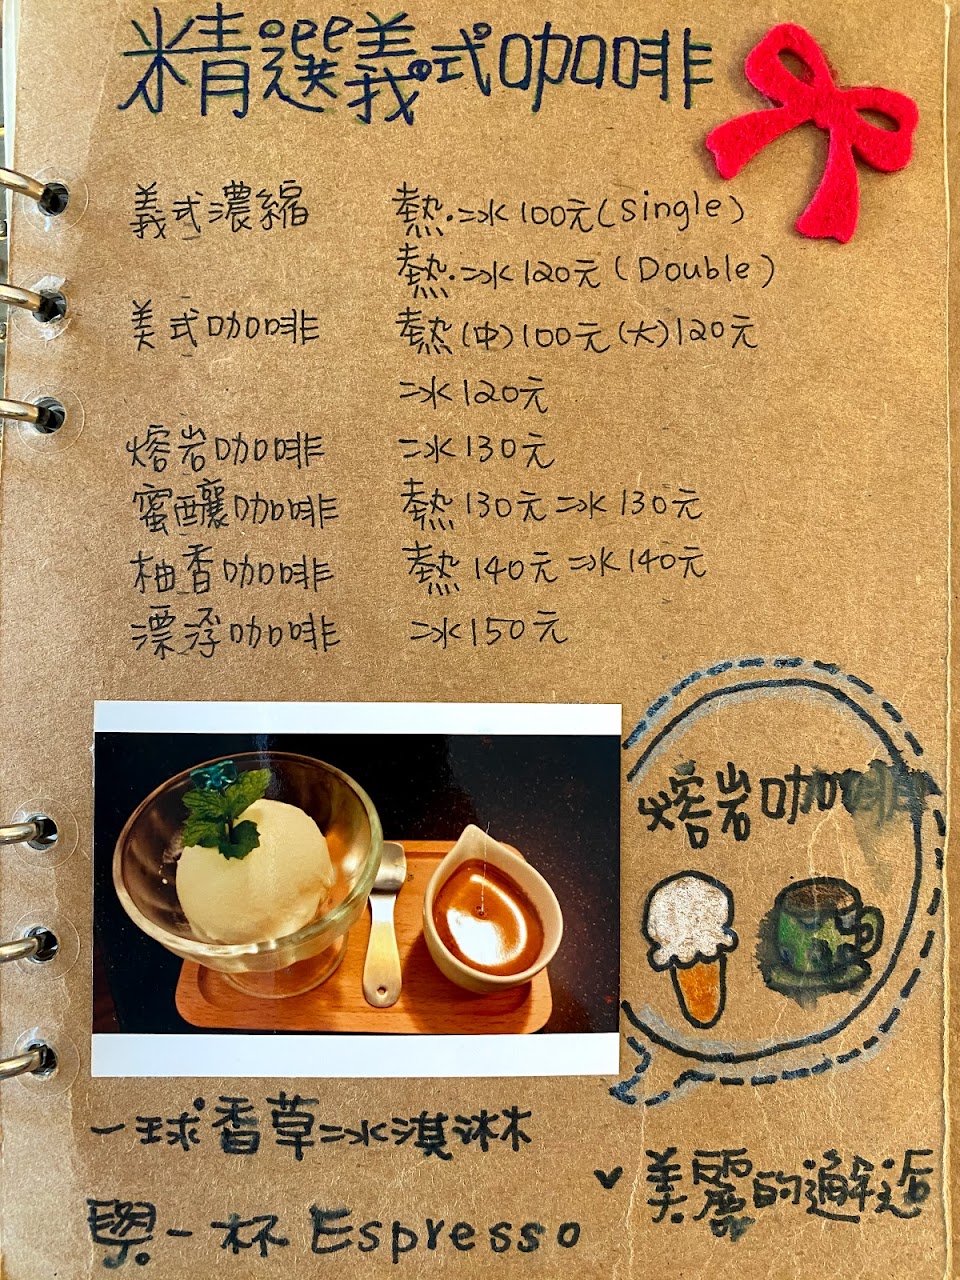 精選義式咖啡
義式濃縮 熱.冰100元(Single)
熱.冰120元(Double)
美式咖啡 熱(中)100元(大)120元
冰120元
熔岩咖啡 冰130元
蜜釀咖啡 熱130元 冰130元
柚香咖啡 熱140元 冰140元
漂浮咖啡 冰150元
熔岩咖啡
一球香草冰淇淋
與一杯 Espresso
美麗的邂逅